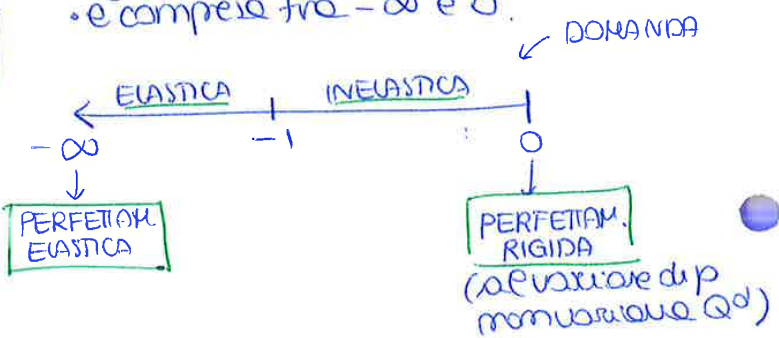 • è compresa fra -∞ e 0.
DOMANDA
ELASTICA INELASTICA
-∞ -1 0
PERFETTAM. ELASTICA
PERFETTAM. RIGIDA
(al variare di p
non varia la Qd)